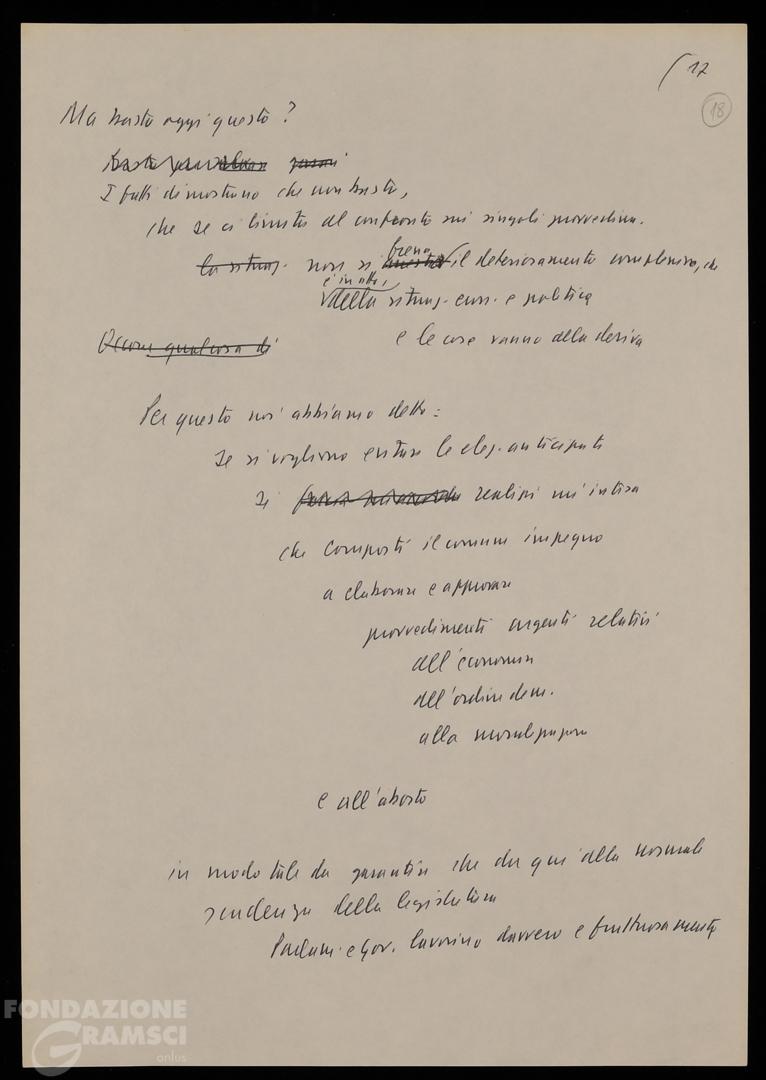 17
18
Ma basta oggi questo?
I fatti dimostrano che non basta,
che se ci limita al confronto sui singoli provvedim.
la situaz. non si frena il deterioramento complessivo, che
è in atto,
della situaz. econ. e politica
Occorre qualcosa di e le cose vanno alla deriva
Per questo noi abbiamo detto:
se si vogliono evitare le elez. anticipate
si realizzi un'intesa
che comporti il comune impegno
a elaborare e approvare
provvedimenti urgenti relativi
all'economia
all'ordine dem.
alla
e all'aborto
in modo tale da garantire che da qui alla normale
scadenza della legislatura
Parlam. e Gov. lavorino davvero e fruttuosamente
FONDAZIONE
GRAMSCI
onlus